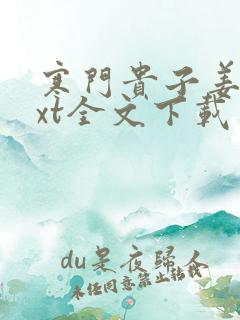 寒門貴子姜
xt全文下載
du是夜歸人
未任同意禁止轉載